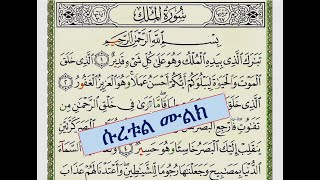 سُورَةُ الْمُلْكِ
بِسْمِ اللَّهِ الرَّحْمَٰنِ الرَّحِيمِ
تَبَٰرَكَ الَّذِى بِيَدِهِ الْمُلْكُ وَهُوَ عَلَىٰ كُلِّ شَىْءٍ قَدِيرٌ ١ الَّذِى خَلَقَ
الْمَوْتَ وَالْحَيَوٰةَ لِيَبْلُوَكُمْ أَيُّكُمْ أَحْسَنُ عَمَلًا وَهُوَ الْعَزِيزُ الْغَفُورُ ٢
الَّذِى خَلَقَ فِى خَلْقِ الرَّحْمَٰنِ مِن
تَفَٰوُتٍ فَارْجِعِ الْبَصَرَ كَرَّتَيْنِ
يَنقَلِبْ إِلَيْكَ الْبَصَرُ خَاسِئًا وَهُوَ حَسِيرٌ ٤ السَّمَآءَ
الدُّنْيَا بِمَصَٰبِيحَ وَجَعَلْنَٰهَا رُجُومًا لِّلشَّيَٰطِينِ وَأَعْتَدْنَا لَهُمْ عَذَابَ
ሱረቱል ሙልክ